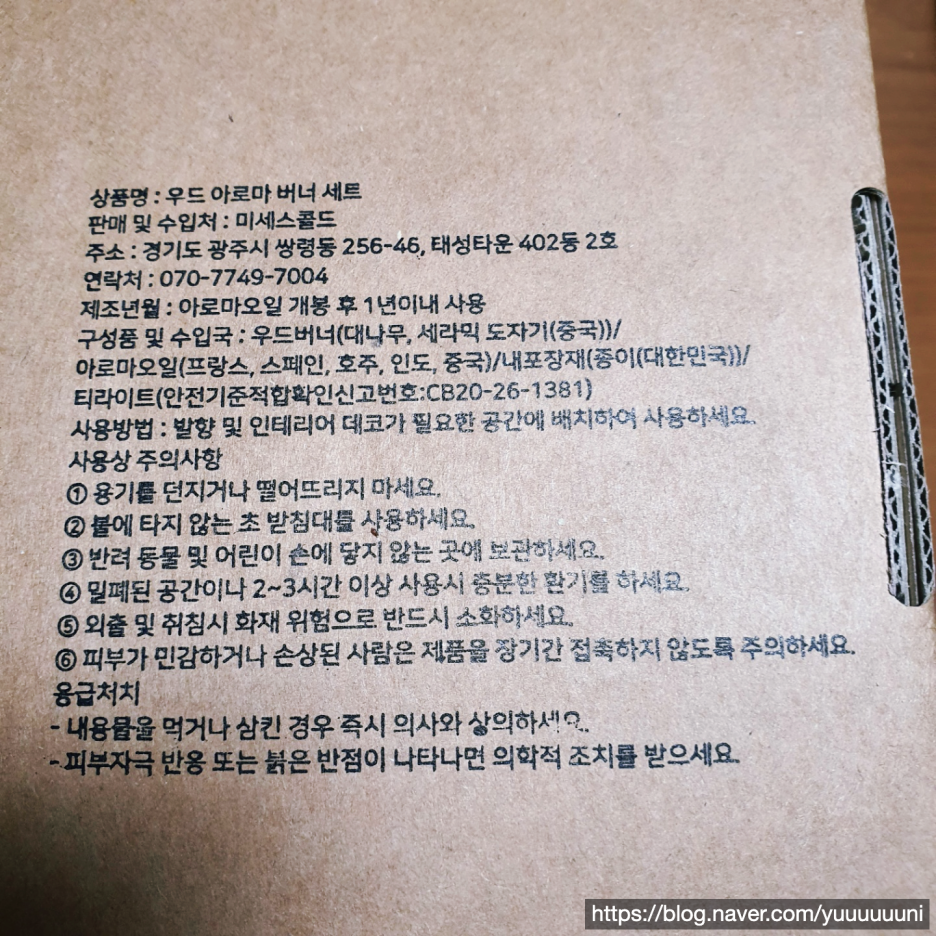 상품명 : 우드 아로마 버너 세트
판매 및 수입처 : 미세스콜드
주소 : 경기도 광주시 쌍령동 256-46, 태성타운 402동 2호
연락처 : 070-7749-7004
제조년월 : 아로마오일 개봉 후 1년이내 사용
구성품 및 수입국 : 우드버너(대나무, 세라믹 도자기(중국))/
아로마오일(프랑스, 스페인, 호주, 인도, 중국)/내포장재(종이(대한민국))/
티라이트(안전기준적합확인신고번호:CB20-26-1381)
사용방법 : 발향 및 인테리어 데코가 필요한 공간에 배치하여 사용하세요.
사용상 주의사항
① 용기를 던지거나 떨어뜨리지 마세요.
② 불에 타지 않는 초 받침대를 사용하세요.
③ 반려 동물 및 어린이 손에 닿지 않는 곳에 보관하세요.
④ 밀폐된 공간이나 2~3시간 이상 사용시 충분한 환기를 하세요.
⑤ 외출 및 취침시 화재 위험으로 반드시 소화하세요.
⑥ 피부가 민감하거나 손상된 사람은 제품을 장기간 접촉하지 않도록 주의하세요.
응급처치
- 내용물을 먹거나 삼킨 경우 즉시 의사와 상의하세요.
- 피부자극 반응 또는 붉은 반점이 나타나면 의학적 조치를 받으세요.
https://blog.naver.com/yuuuuuuni